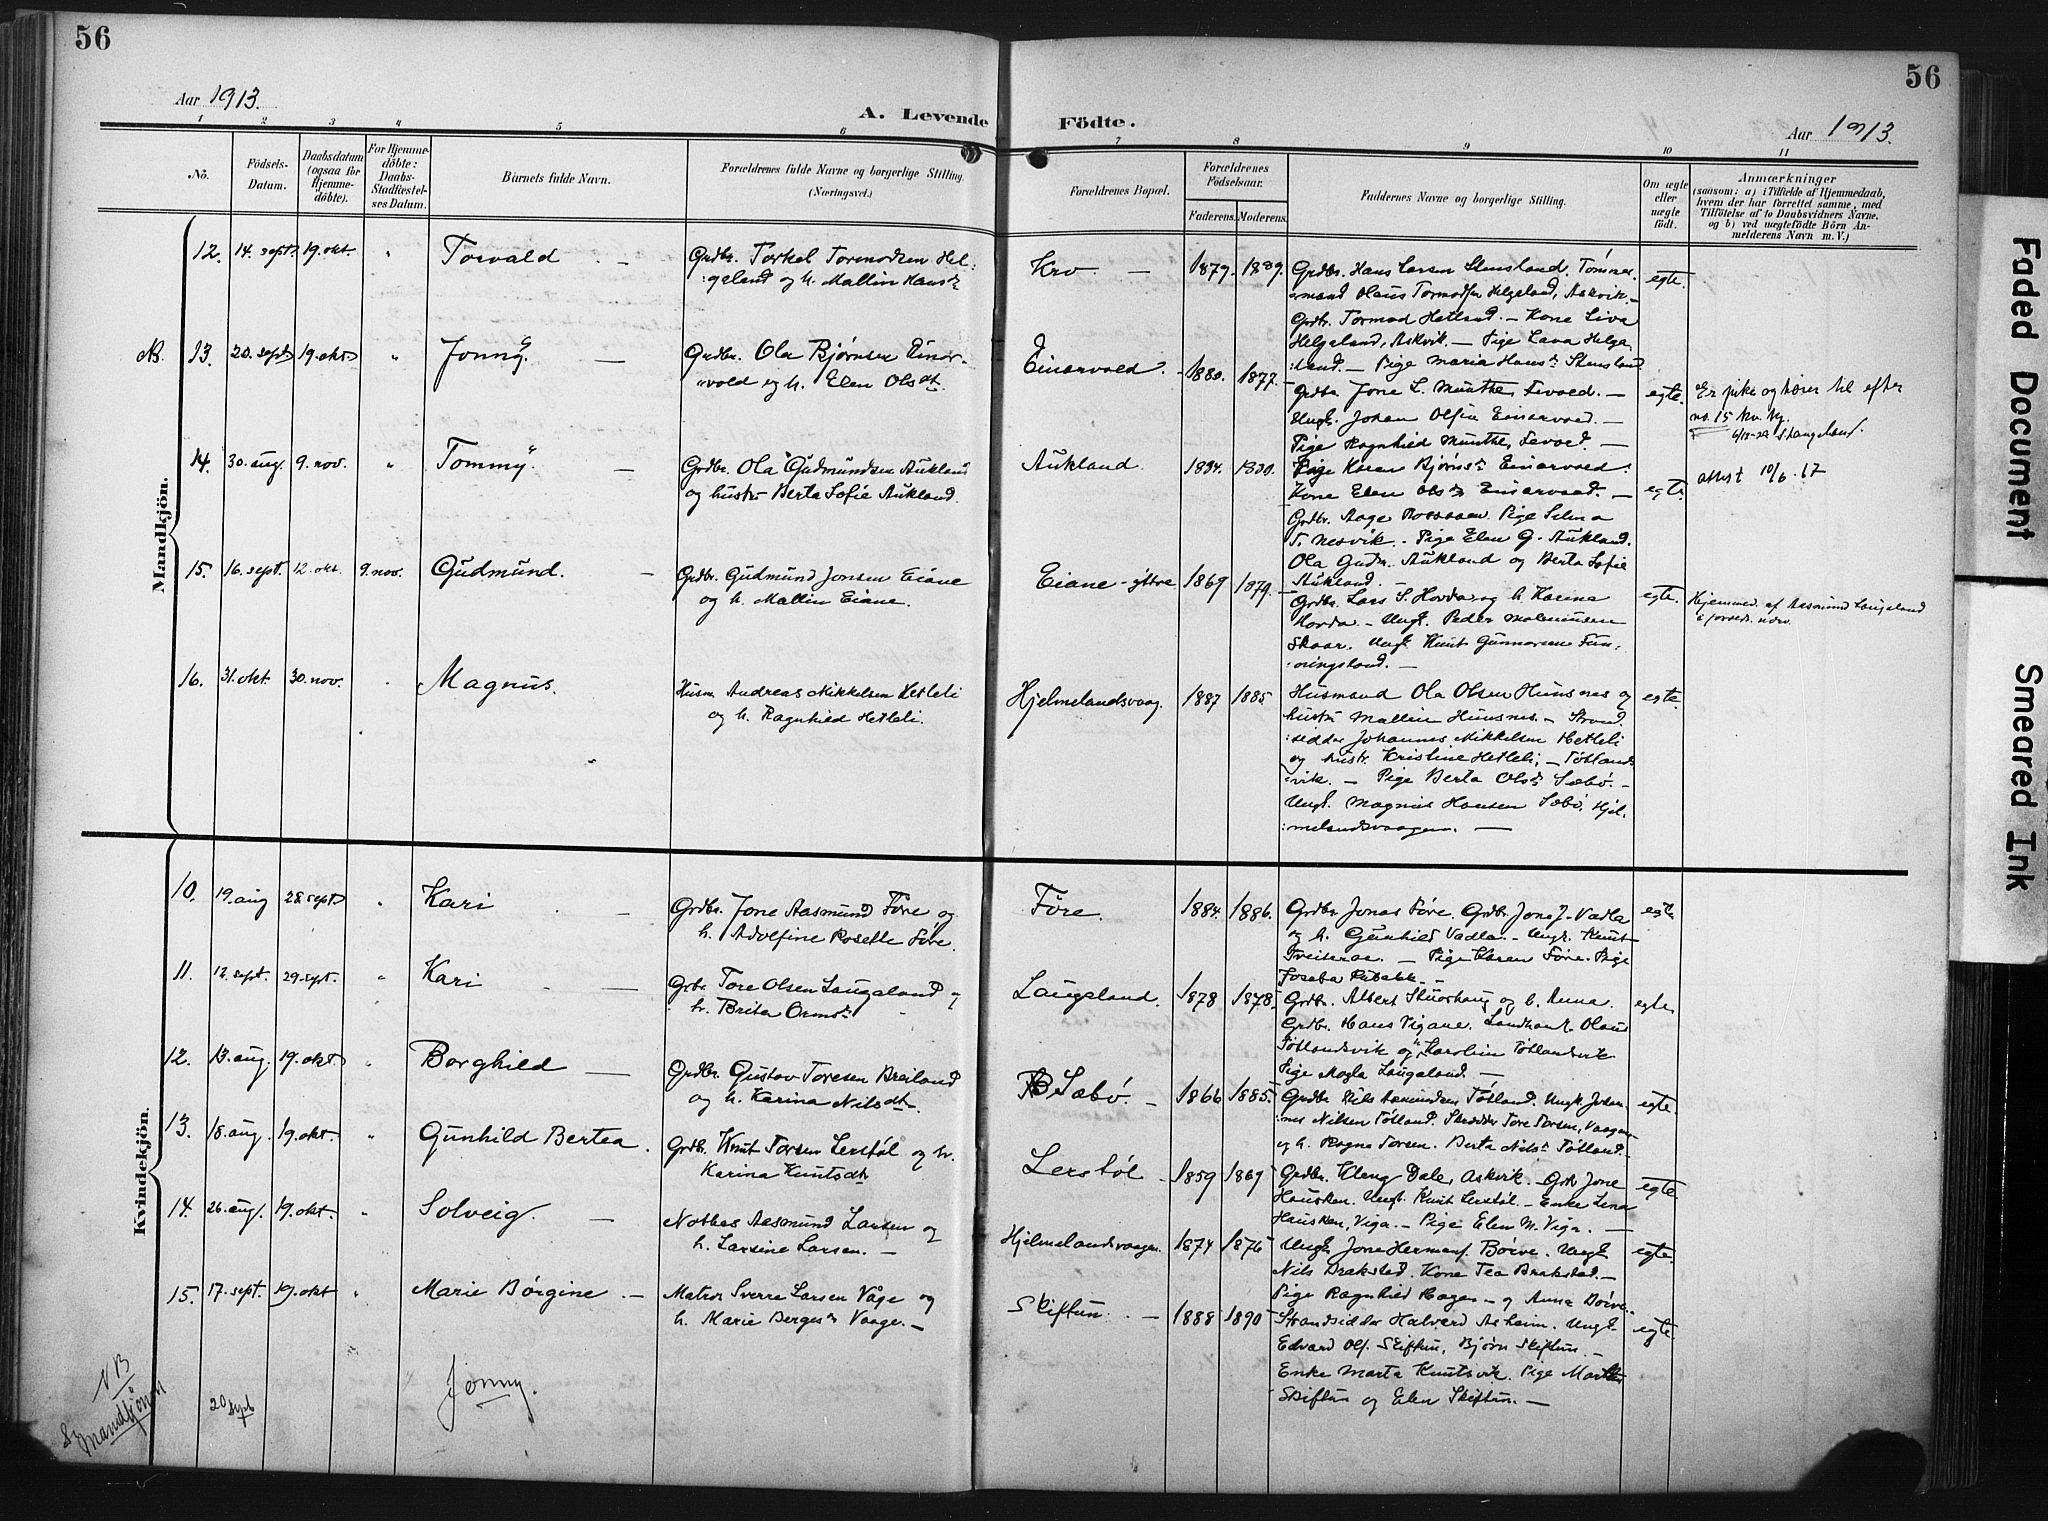 56
56
Aar 1913.
A. Levende Födte.
Aar 1913.
1 2 3 4 5 6 7 8 9 10 11
No.
Födsels-Datum.
Daabsdatum (ogsaa for Hjemmedöbte).
For Hjemmedöbte: Daabs-Stadfestelses Datum.
Barnets fulde Navn.
Forældrenes fulde Navne og borgerlige Stilling.
(Næringsvei.)
Forældrenes Bopæl.
Forældrenes Födselsaar.
Faderens. Moderens.
Faddernes Navne og borgerlige Stilling.
Om ægte eller uægte födt.
Anmærkninger
(saasom: a) i Tilfælde af Hjemmedaab,
hvem der har forrettet samme, med
Tilföielse af to Daabsvidners Navne,
og b) ved uægtefödte Börn Anmelderens Navn m. V.)
Mandkjön.
12. 14. sept. 19. okt. " Torvald —
Grdbr. Torkel Tormodsen Hel-
geland og h. Mallin Hansdt
Kro — 1879. 1889.
Grdbr. Hans Larsen Stensland. Tømmer-
mand Olaus Tormodsen Helgeland, Askvik. —
Grdbr. Tormod Hetland. — Kone Liva
Helgeland, Askvik. — Pige Lava Helge-
land. — Pige Maria Hansdt Stensland
egte.
NB. 13. 20. sept. 19. okt. " Jonny. —
Grdbr. Ola Bjørnsen Einar-
vold og h. Elen Olsdt.
Einarvold. 1880. 1877.
Grdbr. Jone L. Munthe, Tevold. —
Ungk. Johan Olsen Einarvold. —
Pige Ragnhild Munthe, Tevold. —
Pige Karen Bjørnsdt Einarvold.
Kone Elen Olsdt Einarvold. —
egte.
Er pike og hører til efter
no. 15 kv. kj.
14. 30. aug. 9. nov. " Tommy. —
Grdbr. Ola Gudmundsen Aukland
og hustru Berta Sofie Aukland.
Aukland. 1884. 1880.
Grdbr. Aage Pige Selma
T. Nesvik. — Pige Elen G. Aukland.
Ola Gudm. Aukland og Berta Sofie
Aukland. —
egte.
attest 10/6 17
15. 16. sept. 12. okt. 9. nov. Gudmund. —
Grdbr. Gudmund Jonsen Eiane
og h. Mallin Eiane.
Eiane - ytre 1869 1879.
Grdbr. Lars S. Hovda og h. Karina
Hovda. — Ungk. Peder
Skaar. Ungk. Knut Gunnarsen Fun-
ningsland. —
egte.
Hjemmed. af Aasmund Laugeland
16. 31. okt. 30. nov. Magnus.
Husm. Andreas Mikkelsen Hetleli
og h. Ragnhild Hetleli.
Hjelmelandsvaag. 1887 1885
Husmand Ola Olsen Hunsnes og
hustru Mallin Hunsnes. — Strand-
sidder Johannes Mikkelsen Hetleli
og hustr. Kristine Hetleli, — Tøtlands-
vik. — Pige Berta Olsdt Sæbø. —
Ungk. Magnus Hansen Sæbø, Hjel-
melandsvaagen. —
egte.
Kvindekjön.
10. 19. aug 28. sept " Kari —
Grdbr. Jone Aasmund Føre og
h. Adolfine Rosette Føre.
Føre. 1884. 1886.
Grdbr. Jonas Føre. Grdbr. Jone J. Vadla
og h. Gunhild Vadla. — Ungk. Knut
— Pige Karen Føre. Pige
egte
11. 12. sept. 29. sept. " Kari —
Grbr. Tore Olsen Laugaland og
h. Brita Ormsdt
Laugaland. 1878 1878.
Grdbr. Albert Stuorhaug og h. Anna.
Grdbr. Hans Vigane. Landhand. Olaus
Tøtlandsvik og h. Karoline Tøtlandsvik
Pige Magla Laugaland. —
egte.
12. 13. aug. 19. okt " Borghild —
Grdbr. Gustav Toresen Breiland
og h. Karina Nilsdtr.
Sæbø. — 1866 1885.
Grdbr. Nils Aasmundsen Tøtland. Ungk. Johan-
nes Nilsen Tøtland. Skrædder Tore Torsen, Vaagen
og h. Ragna Torsen. Berta Nilsdt Tøtland. —
egte.
13. 18. aug. 19. okt. " Gunhild Bertea.
Grdb. Knut Torsen Lerstøl og h.
Karina Knutsdtr
Lerstøl 1859 1869
Grdbr. Kleng Dale, Askvik. — Grdb Jone
Hausken. Ungk. Knut Lerstøl. — Enke Lena
Hausken, Viga. — Pige Elen M. Viga. —
egte.
14. 26. aug. 19. okt. " Solveig. —
Notbas Aasmund Larsen og
h. Larsine Larsen. —
Hjelmelandsvaagen. 1874 1876
Ungk. Jone Hermans. Børve. Ungk
Nils Brakstad. Kone Tea Brakstad. —
Pige Ragnhild Hagen — og Anna Børve.
egte.
15. 17. sept. 19. okt " Marie Børgine —
Matros Sverre Larsen Våge og
h. Marie Bergesdt Vaage. —
Skiftun. — 1888 1890
Strandsidder Halvard Asheim. Ungk
Edvard Ols. Skiftun, Bjørn Skiftun. —
Enke Marta Knutsvik. Pige Martha
Skiftun og Elen Skiftun. —
egte.
NB
Se Mandkjönnn
20 sept
Jonny.
Faded Document
Smeared Ink